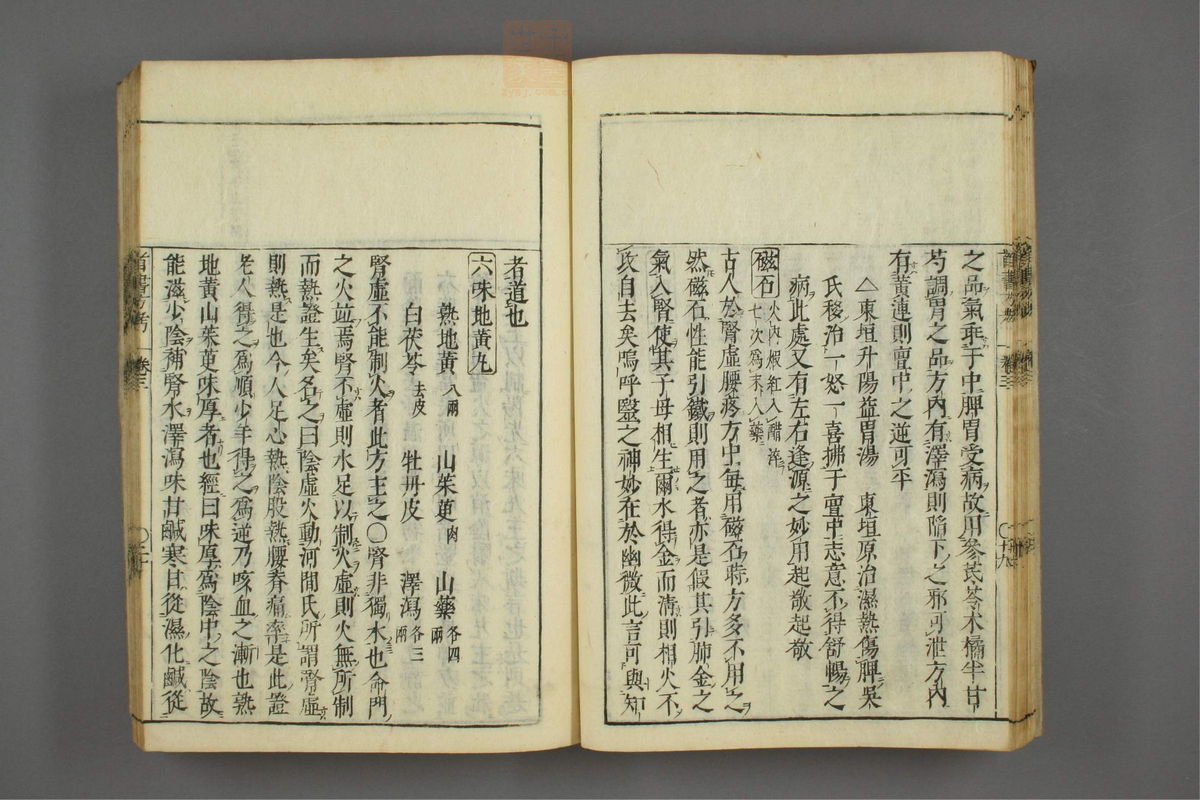 之品氣乖于中脾胃受病故用參芪苓木橘半甘
芍調胃之品方內有澤瀉則陷下之邪可泄方內
有黃連則膻中之逆可平
△東垣升陽益胃湯　東垣原治濕熱傷脾吳
氏移治一怒一喜拂于膻中志意不得舒暢之
病此處又有左右逢源之妙用起敬起敬
磁石　火內煅紅入醋淬
七次爲末入藥
古人於腎虛腰疼方中每用磁石時方多不用之
然磁石性能引鐵則用之者亦是假其引肺金之
氣入腎使其子母相生爾水得金而清則相火不
攻自去矣嗚呼醫之神妙在於幽微此言可與知
卷三
十九
者道也
六味地黃丸
熟地黃八兩　山茱萸肉　山藥各四兩
白茯苓去皮　牡丹皮　澤瀉各三兩
腎虛不能制火者此方主之〇腎非獨水也命門
之火並焉腎不虛則水足以制火虛則火無所制
而熱證生矣名之曰陰虛火動河間氏所謂腎虛
則熱是也今人足心熱陰股熱腰脊痛率是此證
老人得之爲順少年得之爲逆乃咳血之漸也熟
地黃山茱萸味厚者也經曰味厚爲陰中之陰故
能滋少陰補腎水澤瀉味甘鹹寒甘從濕化鹹從
卷三
二十